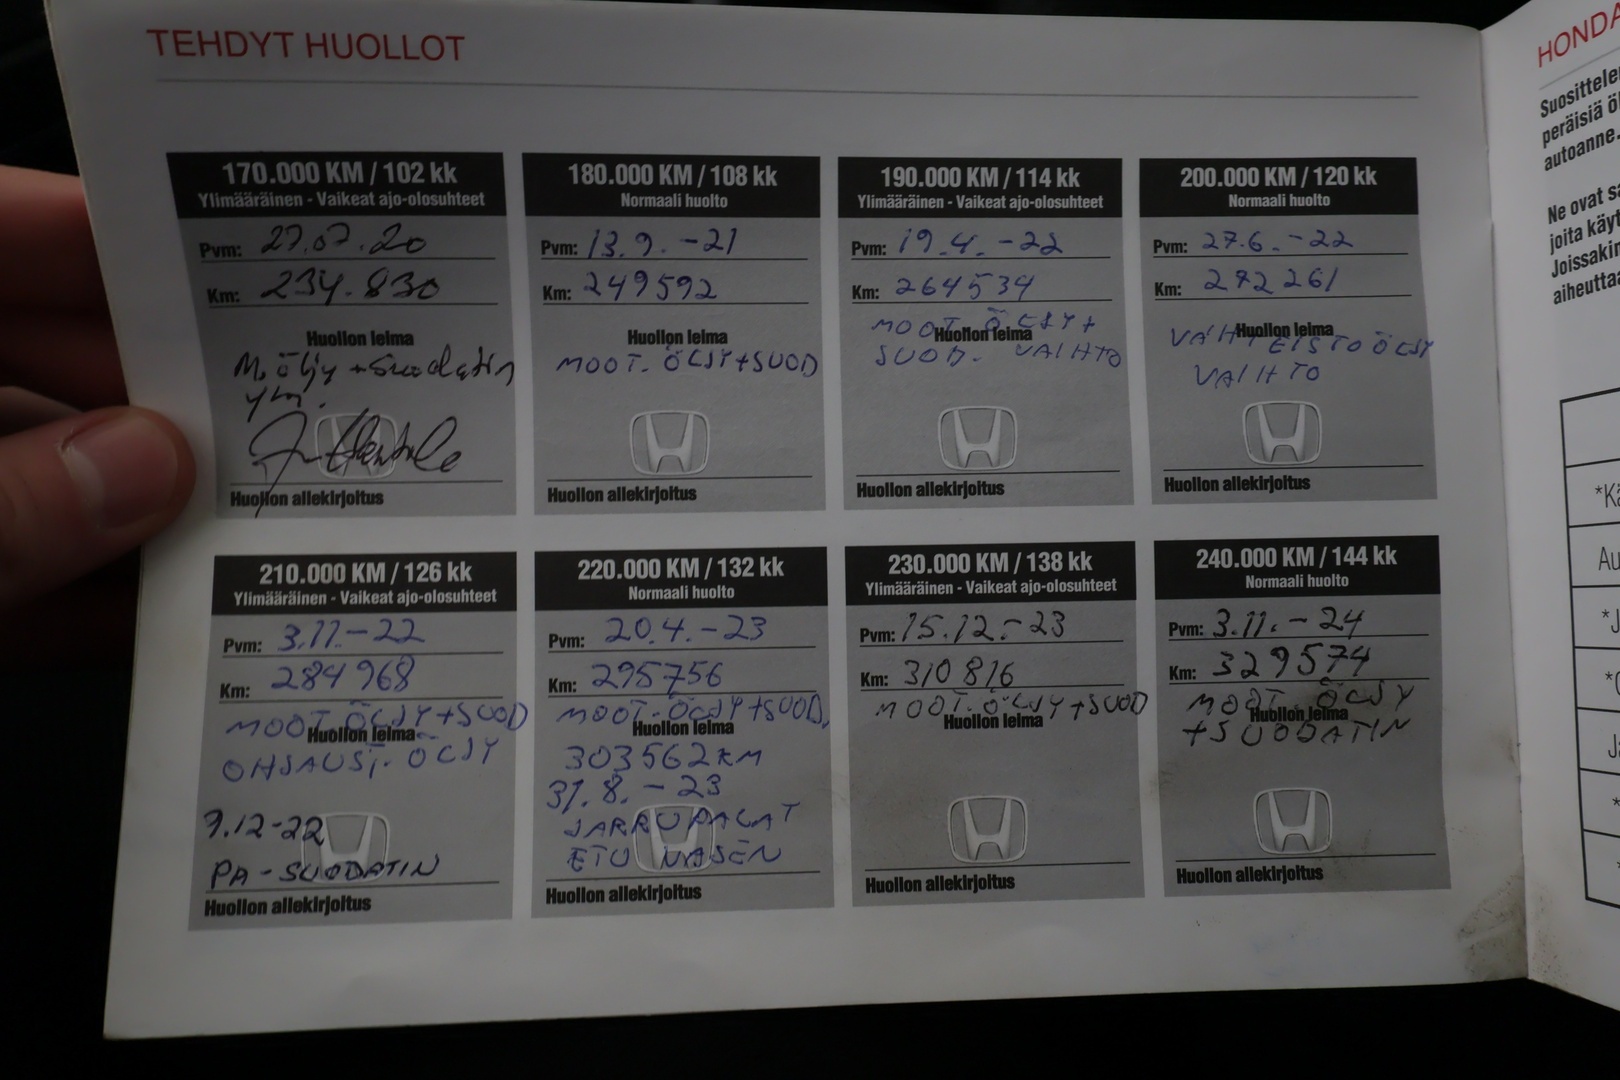 TEHDYT HUOLLOT
170.000 KM / 102 kk
Ylimääräinen - Vaikeat ajo-olosuhteet
Pvm: 27.07.20
Km: 234.830
Huollon leima
M.öljy + Suodatin
ym.
Huollon allekirjoitus
180.000 KM / 108 kk
Normaali huolto
Pvm: 13.9.-21
Km: 249592
Huollon leima
MOOT. ÖLJY+SUOD
Huollon allekirjoitus
190.000 KM / 114 kk
Ylimääräinen - Vaikeat ajo-olosuhteet
Pvm: 19.4.-22
Km: 264534
MOOT. ÖLJY+
Huollon leima
SUOD. VAIHTO
Huollon allekirjoitus
200.000 KM / 120 kk
Normaali huolto
Pvm: 27.6.-22
Km: 272261
Huollon leima
VAIHTEISTOÖLJY
VAIHTO
Huollon allekirjoitus
210.000 KM / 126 kk
Ylimääräinen - Vaikeat ajo-olosuhteet
Pvm: 3.11.-22
Km: 284968
MOOT.ÖLJY+SUOD
Huollon leima
OHJAUST. ÖLJY
9.12-22
PA-SUODATIN
Huollon allekirjoitus
220.000 KM / 132 kk
Normaali huolto
Pvm: 20.4.-23
Km: 295756
MOOT.ÖLJY+SUOD,
Huollon leima
303562KM
31.8.-23
JARRUPALAT
ETU VASEN
Huollon allekirjoitus
230.000 KM / 138 kk
Ylimääräinen - Vaikeat ajo-olosuhteet
Pvm: 15.12.-23
Km: 310816
MOOT.ÖLJY+SUOD
Huollon leima
Huollon allekirjoitus
240.000 KM / 144 kk
Normaali huolto
Pvm: 3.11.-24
Km: 329574
MOOT. ÖLJY
Huollon leima
+SUODATIN
Huollon allekirjoitus
HONDA
Suosittele
peräisiä öl
autoanne.
Ne ovat sa
joita käyt
Joissakin
aiheutta
*Kä
Au
*J